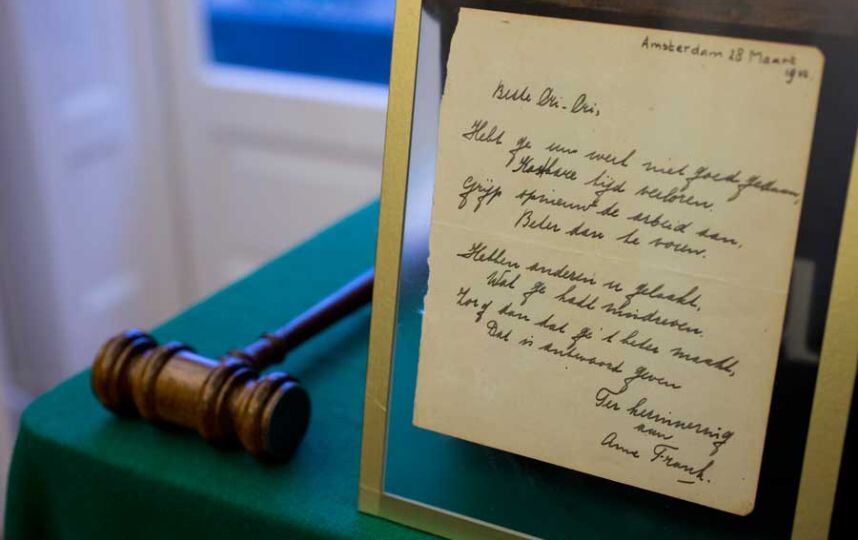 Amsterdam 28 Maart
1942
Beste Cri-Cri,
Hebt ge uw werk niet goed gedaan,
Kostbare tijd verloren.
Grijp opnieuw de arbeid aan,
Beter dan te voren.
Hebben anderen u gelaakt,
Wat ge hadt misdreven.
Zorg dan dat ge 't beter maakt,
Dat is antwoord geven
Ter herinnering
aan
Anne Frank.